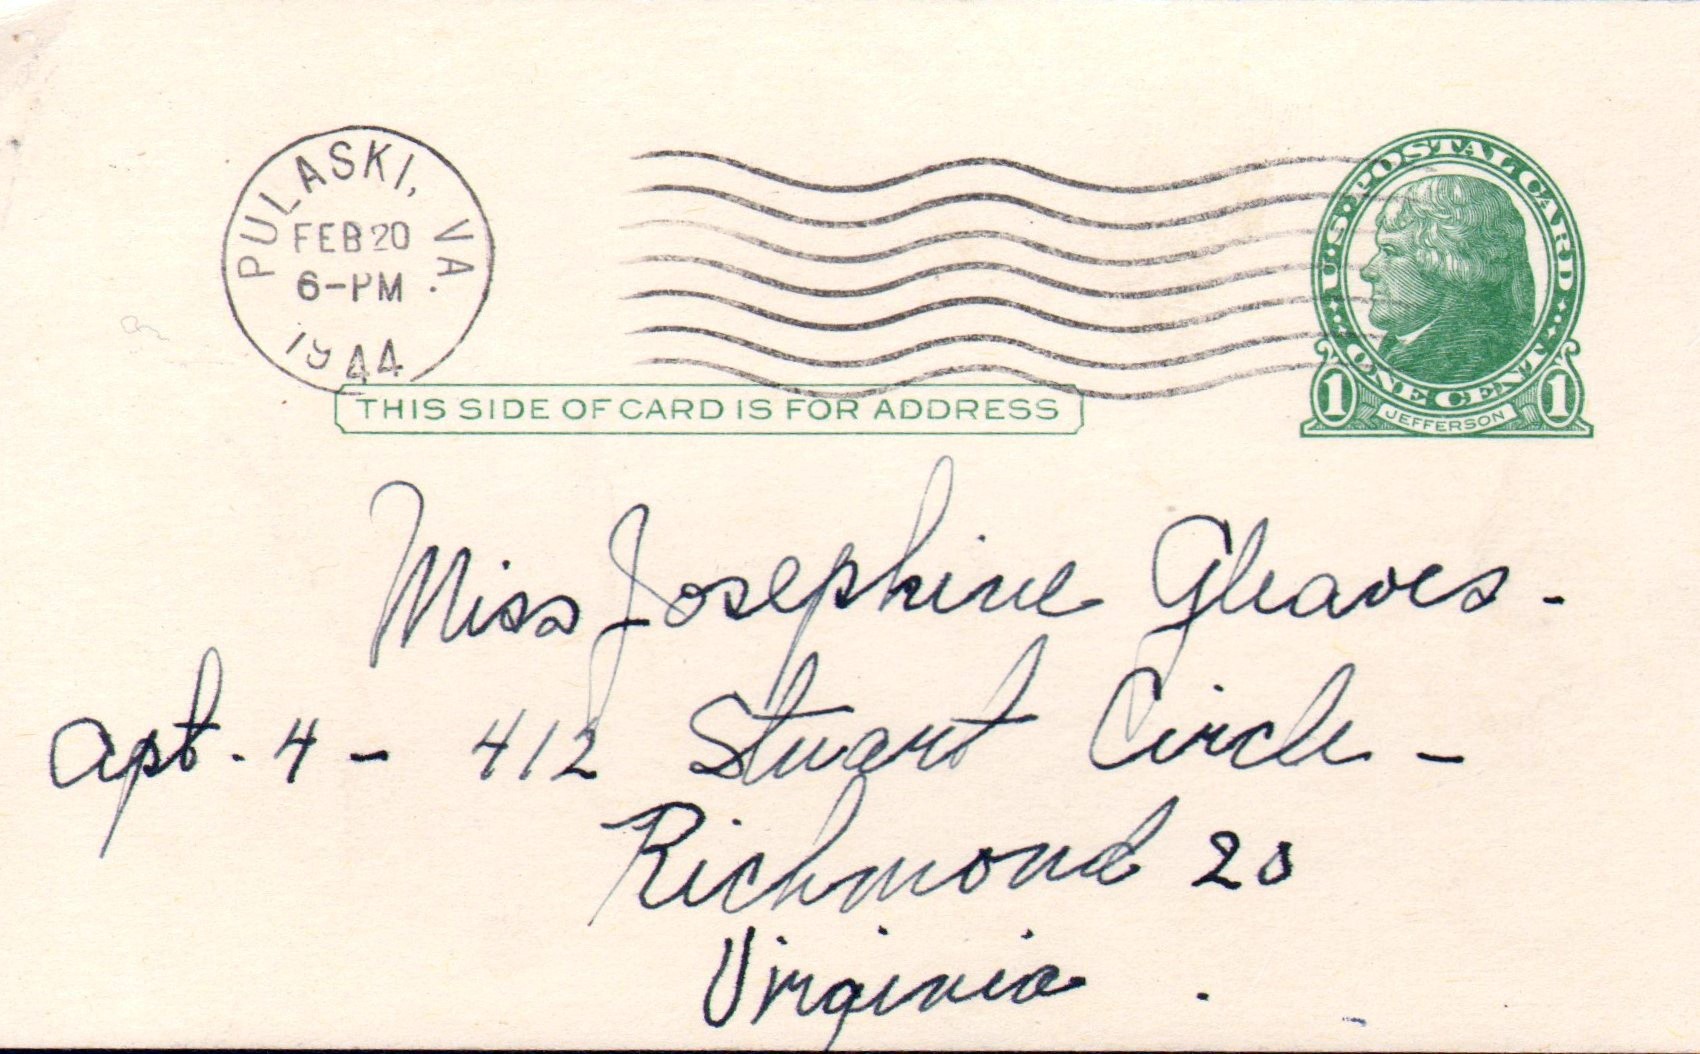 PULASKI, VA.
FEB 20
6-PM
1944
U.S. POSTAL CARD
ONE CENT
1 1
JEFFERSON
THIS SIDE OF CARD IS FOR ADDRESS
Miss Josephine Gleaves -
Apt. 4 - 412 Stuart Circle -
Richmond 20
Virginia .